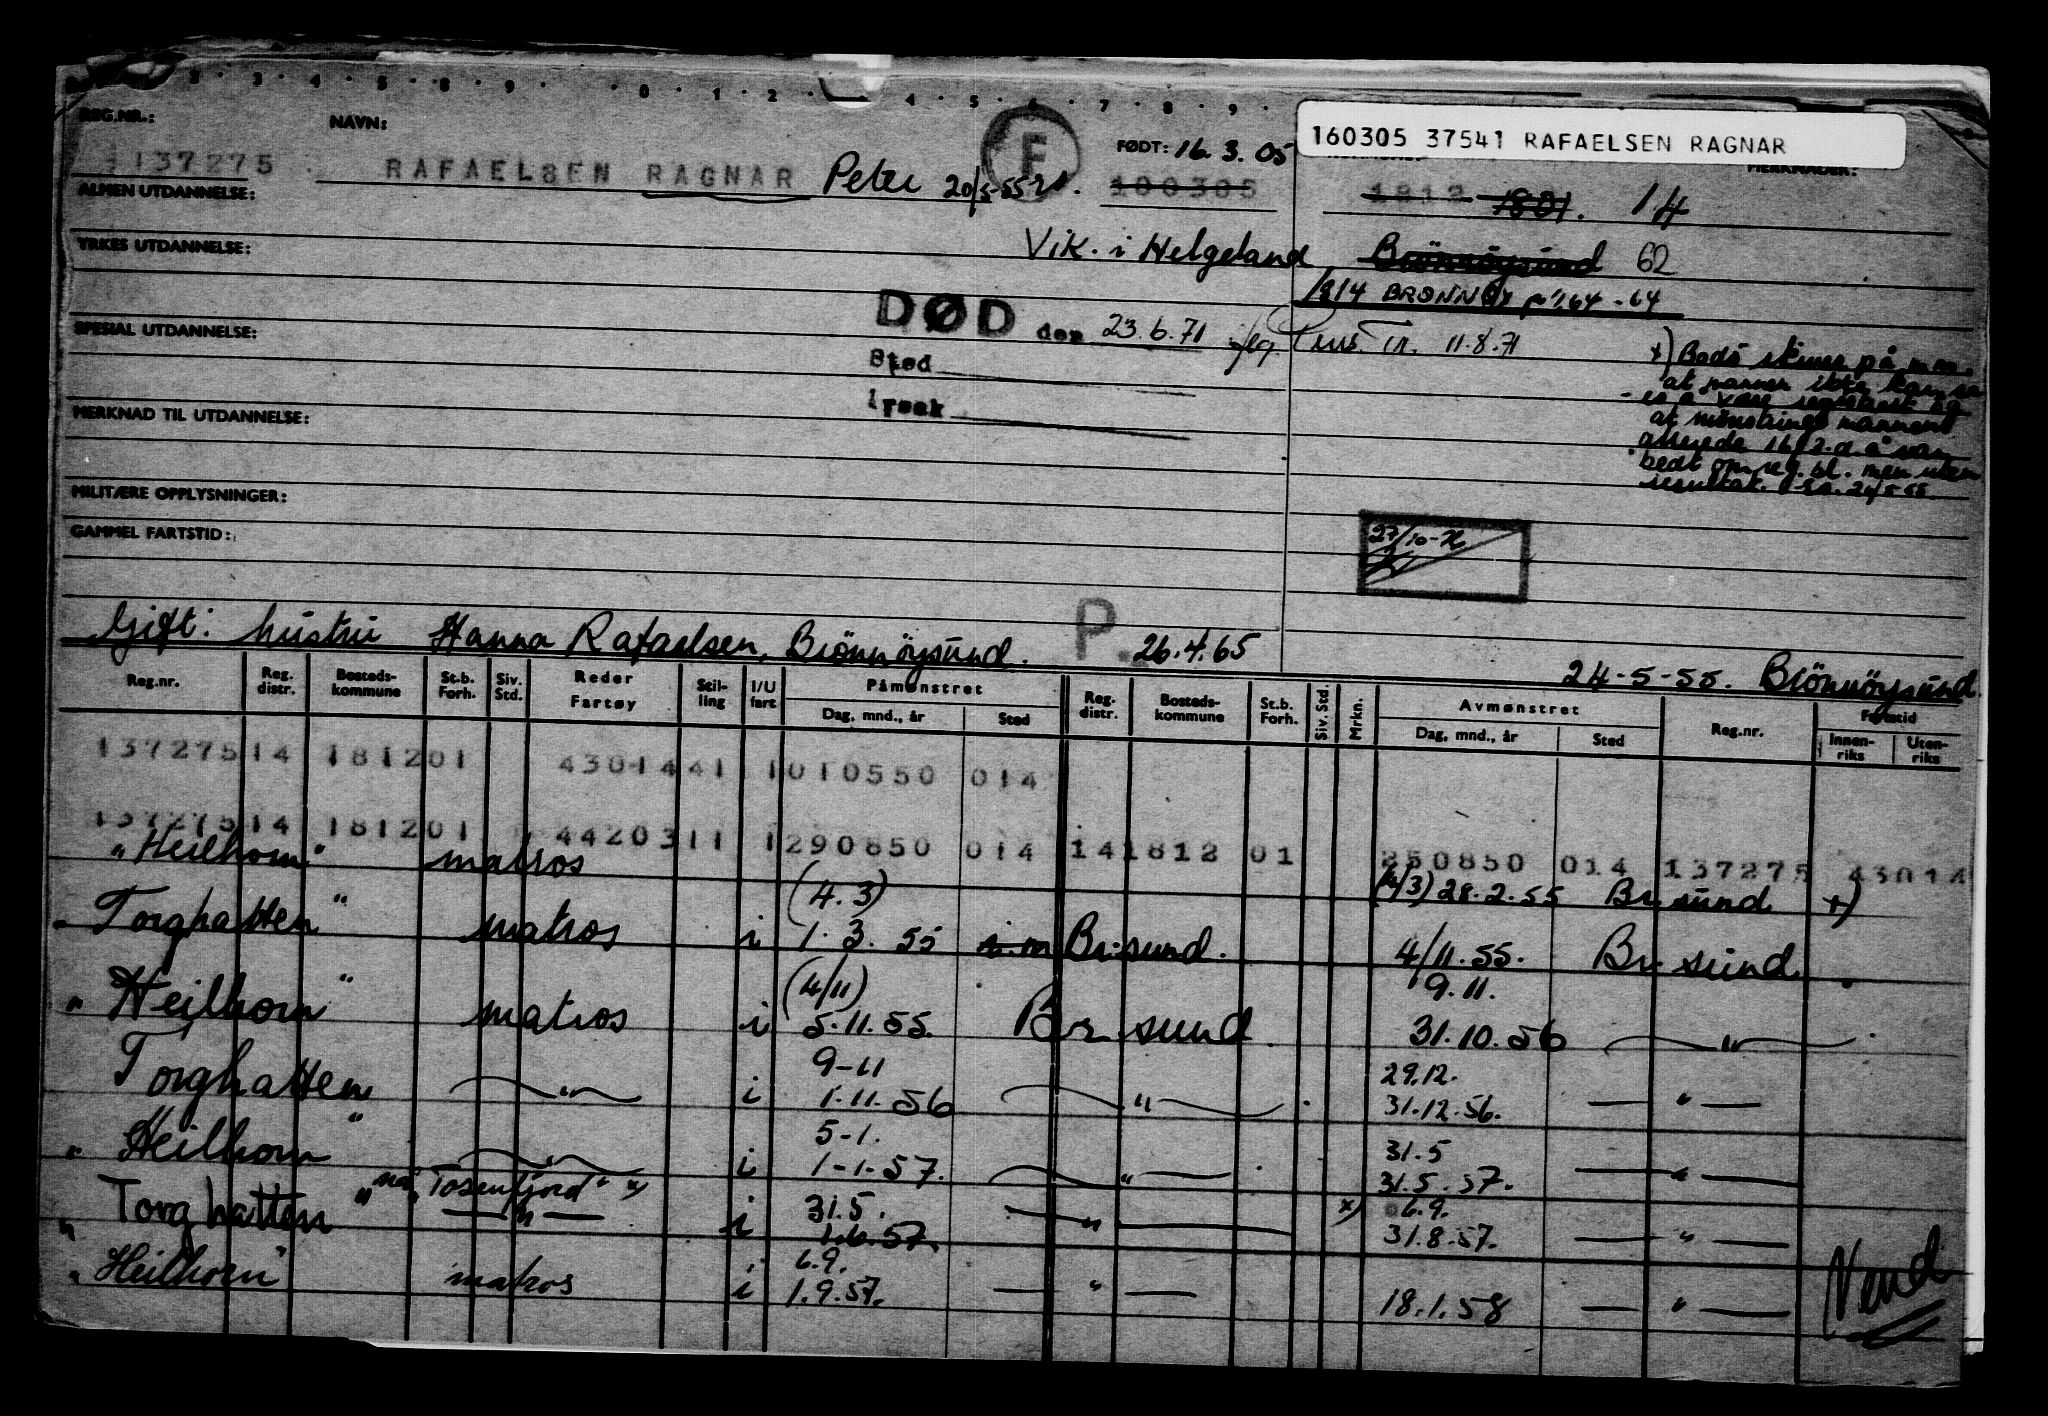 2 · 3 · 4 · 5 · 8 · 9 · 0 · 1 · 2 · 4 · 5 · 6 · 7 · 8 · 9 ·
160305 37541 RAFAELSEN RAGNAR
REG.NR.: NAVN: F FØDT: 16. 3. 05 MERKNADER:
137275 RAFAELSEN RAGNAR Peter 20/5-55 100305 1812 1801. 14
ALMEN UTDANNELSE:
YRKES UTDANNELSE: Vik. i Helgeland Brönnöysund 62
1814 BRØNNØY 64
DØD den 23.6.71 Tr. 11.8.71
SPESIAL UTDANNELSE:
Sted
x) Bodö skriver på mø.
at navnet ikke kan
være registrert og
at mönstrings mannen
allerede 16/2.d.å var
bedt om reg.bl. men uten
resultat. 20/5-55
MERKNAD TIL UTDANNELSE:
MILITÆRE OPPLYSNINGER:
GAMMEL FARTSTID:
27/10-
Gift: hustru Hanna Rafaelsen, Brönnöysund. P. 26.4.65
24-5-55. Brönnöysund.
Reg.nr. Reg. distr. Bosteds-kommune St.b. Forh. Siv. Std. Reder Fartøy Stil-ling I/U fart Påmønstret Dag, mnd., år Sted Reg. distr. Bosteds-kommune St.b. Forh. Siv. Std. Mrkn. Avmønstret Dag, mnd., år Sted Reg.nr. Fartstid Innen-riks Uten-riks
137275 14 1812 01 43014 41 1 010550 014
137275 14 1812 01 44203 11 1 290850 014 14 1812 01 250850 014 137275 43014
"Heilhorn" matros (4/3) 28.2.55 Br.sund x)
(4.3)
"Torghatten" matros i 1.3.55 i.m Br.sund. 4/11.55. Br.sund.
(4/11) 9.11.
"Heilhorn" matros i 5.11.55. Br.sund 31.10.56 — " —
9-11 29.12.
Torghatten — " — i 1.11.56 — " — 31.12.56. — " —
5-1. 31.5
"Heilhorn" — " — i 1-1-57. — " — 31.5.57. — " —
"Tosenfjord" x) i 31.5. x) 6.9.
"Torghatten" — " — i 1.6.57. — " — 31.8.57. — " —
i 6.9.
"Heilhorn" matros i 1.9.57. — " — 18.1.58 — " —
Vend